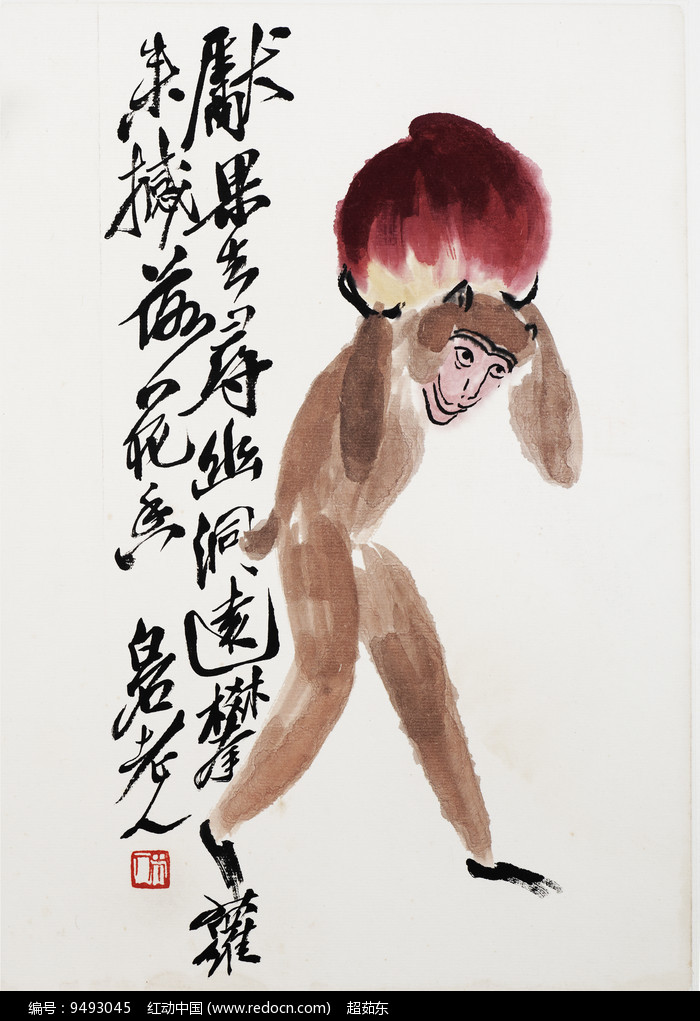 獻果去尋幽洞遠攀蘿
来撼落花香 白石老人
编号：9493045 红动中国 (www.redocn.com) 超茹东